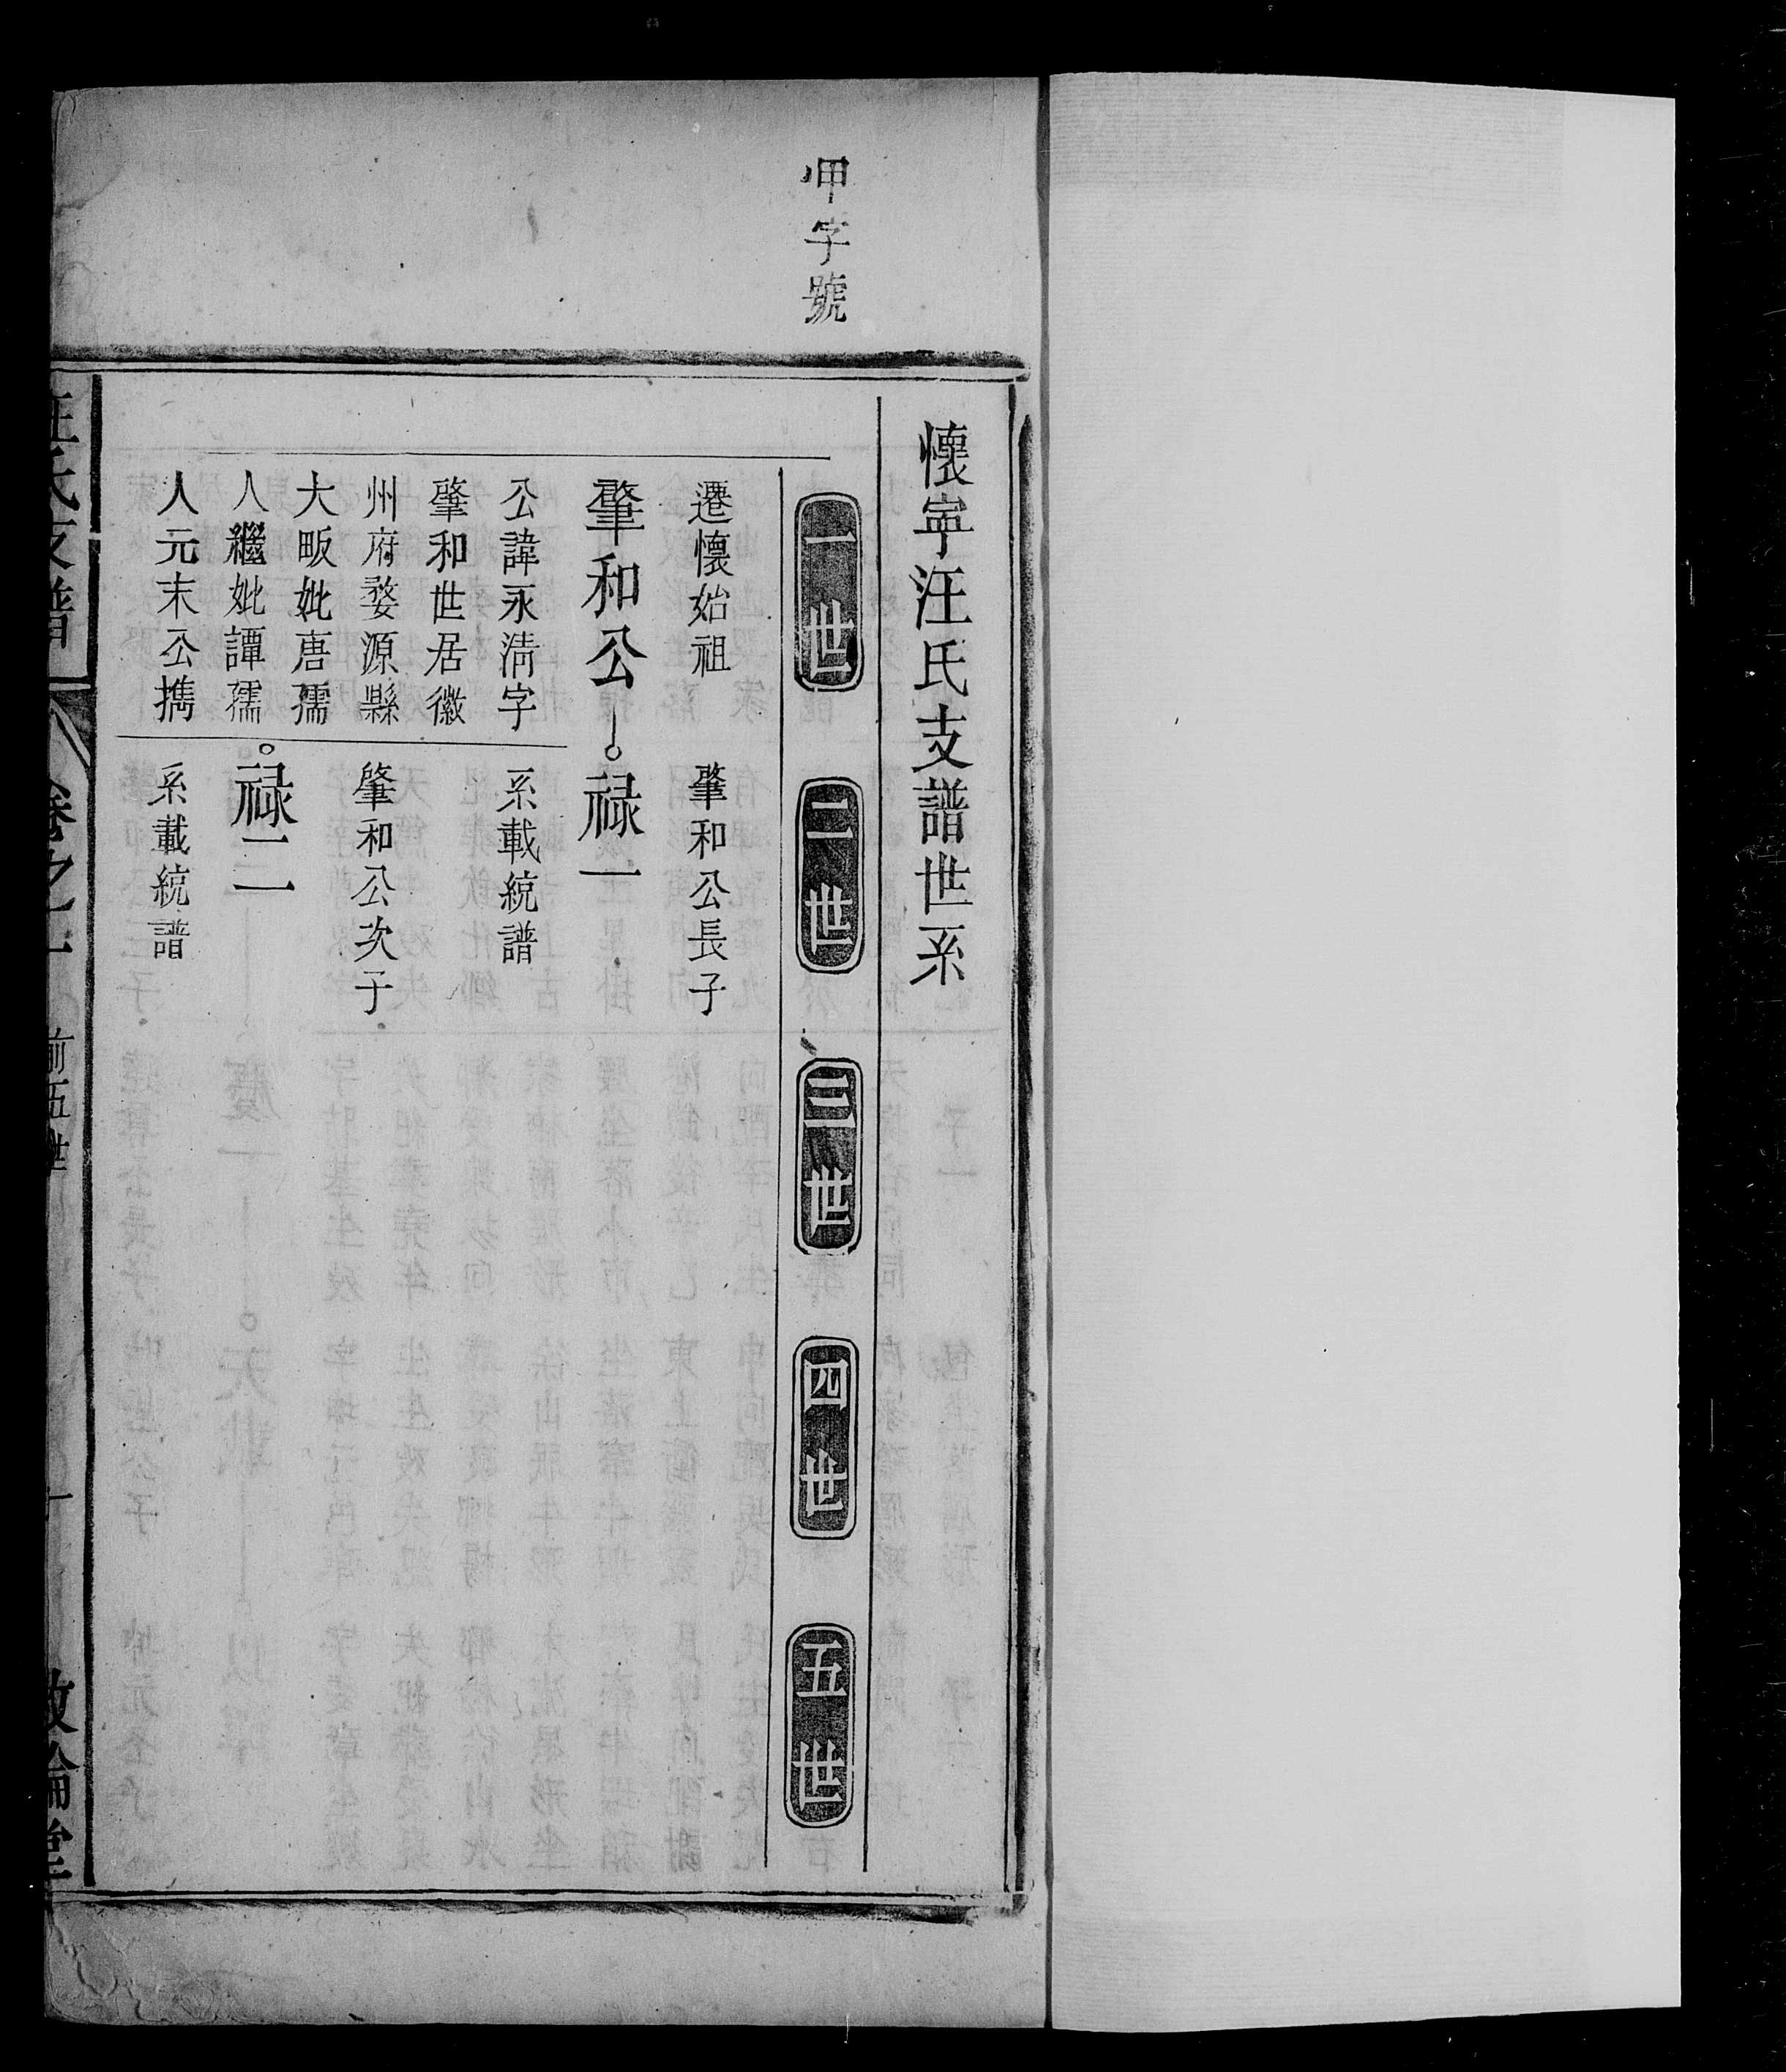 甲字號
懷寧汪氏支譜世系
一世
二世
三世
四世
五世
遷懷始祖
肇和公
公諱永淸字
肇和世居徽
州府婺源縣
大畈妣唐孺
人繼妣譚孺
人元末公攜
肇和公長子
祿一
系載統譜
肇和公次子
祿二
系載統譜
汪氏支譜
卷之一
前五世
一
敦倫堂